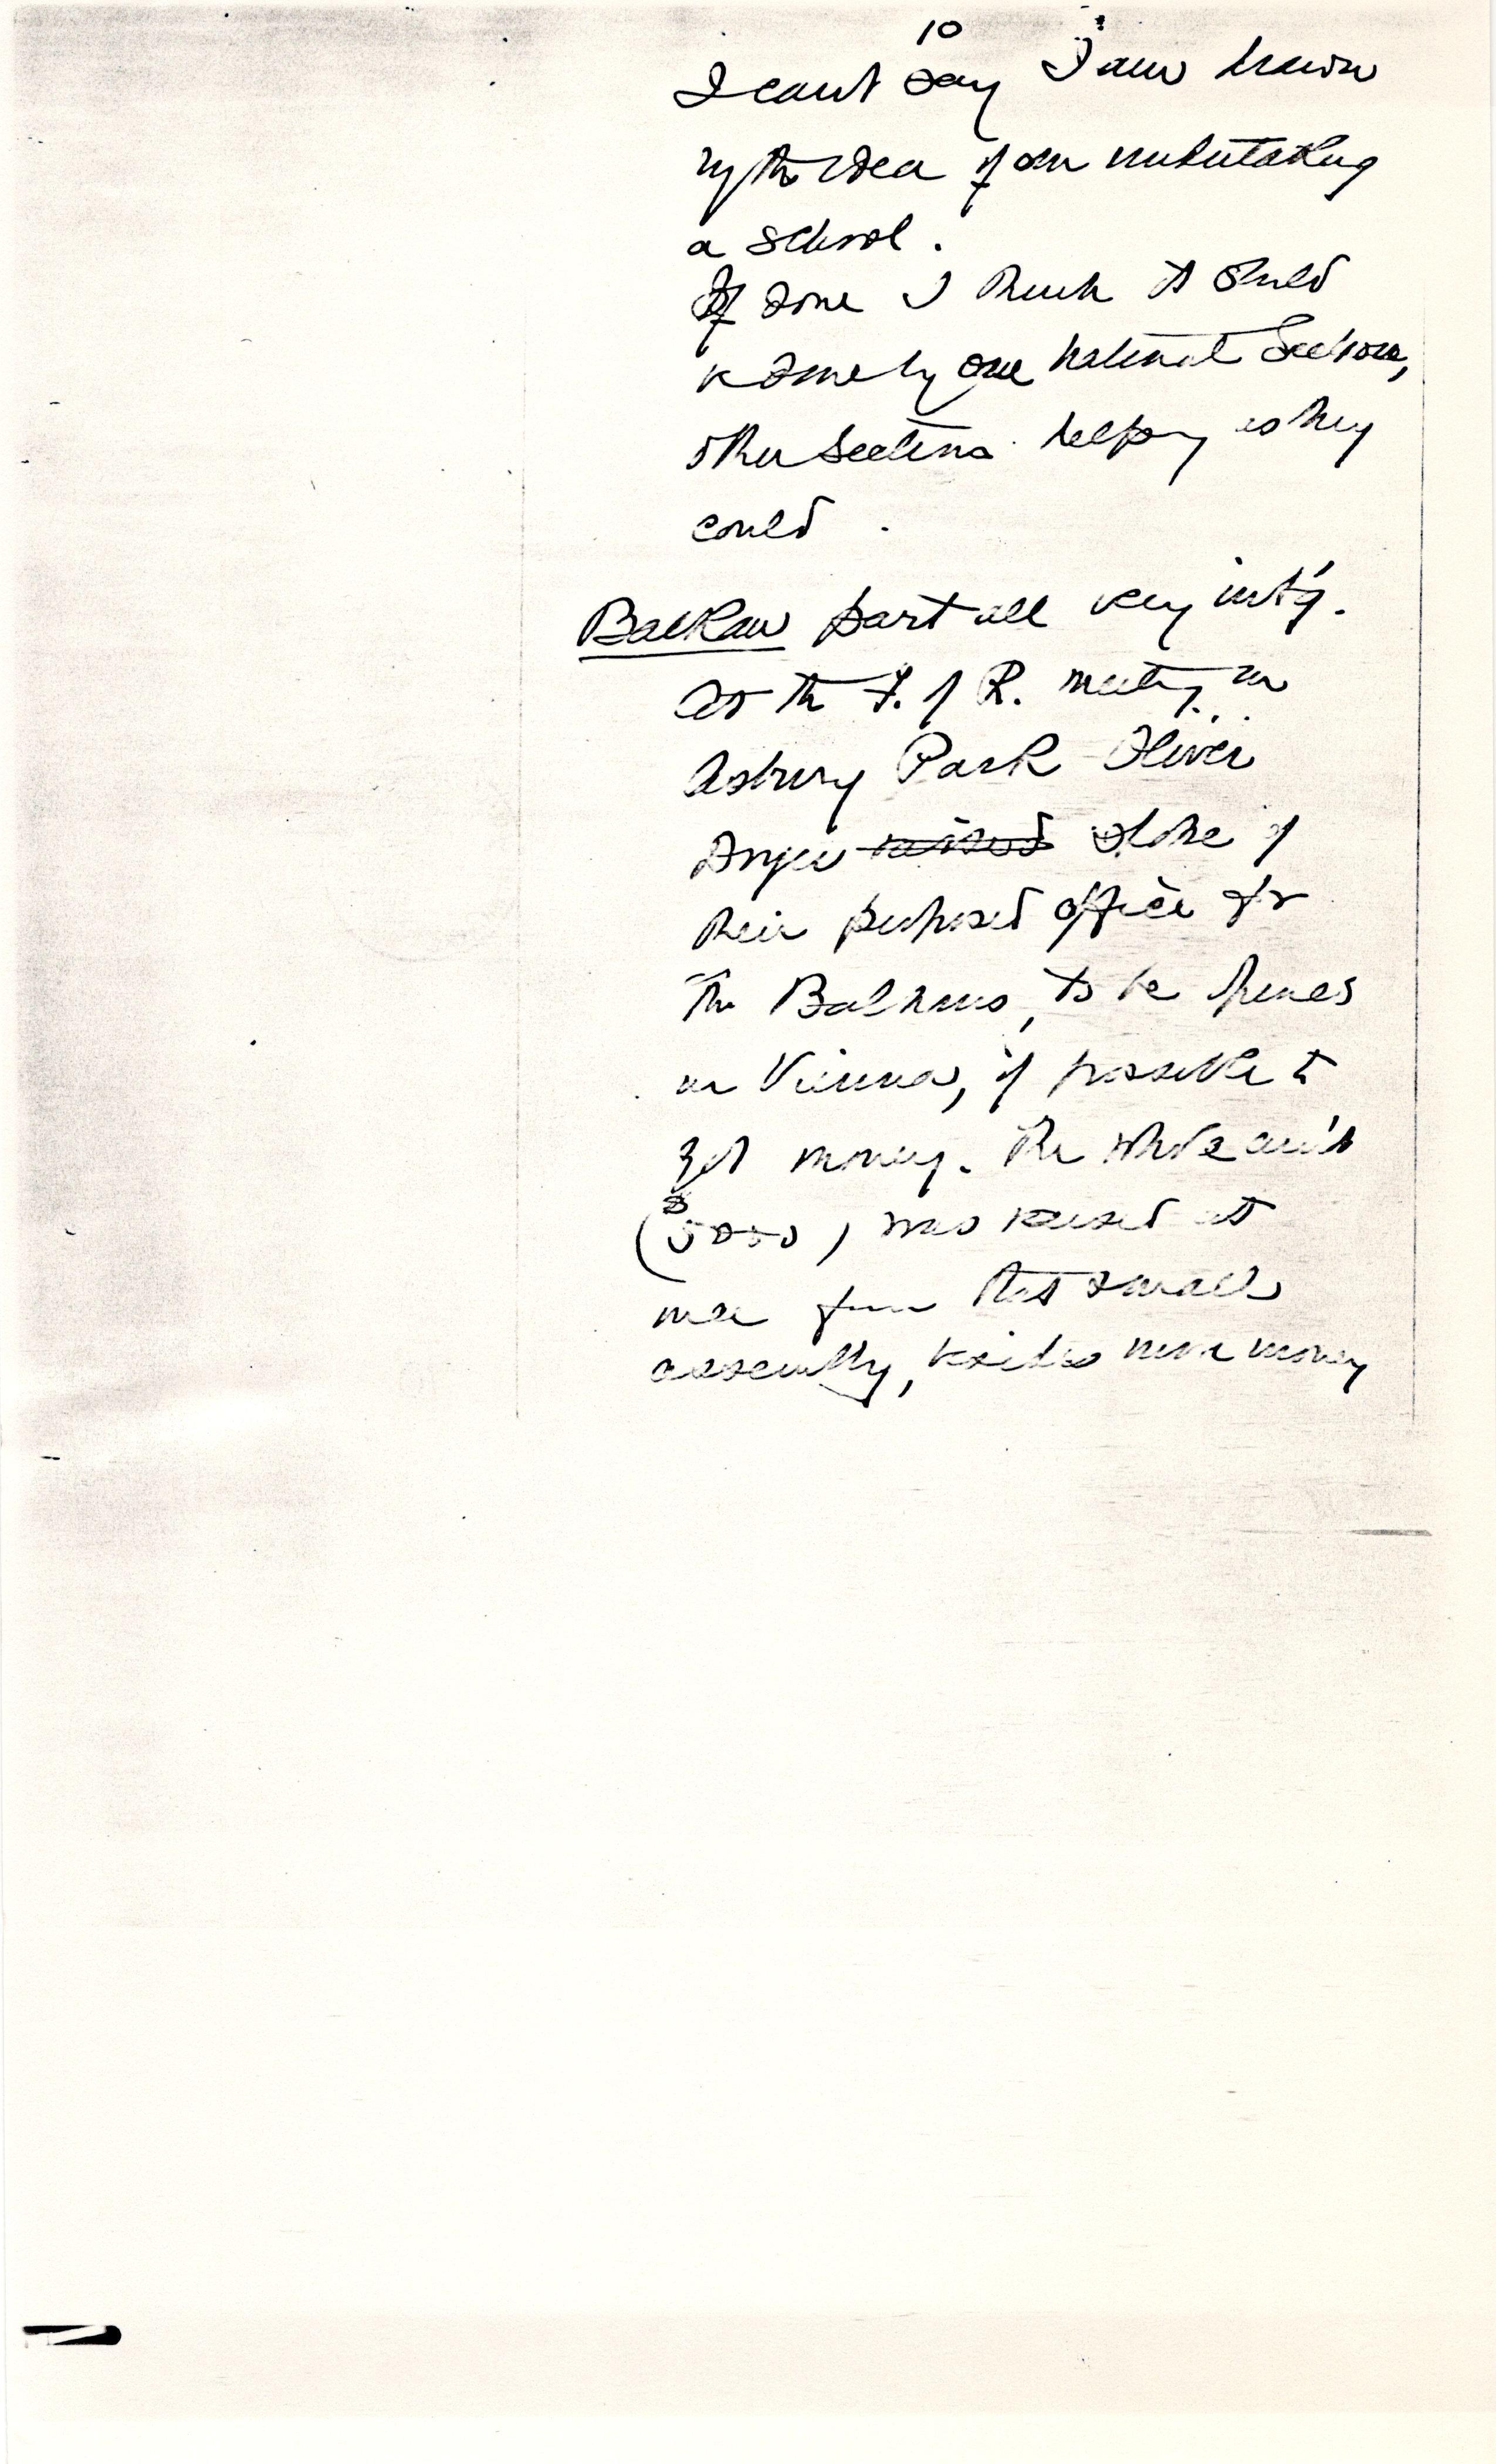 10
I can't say I am drawn
by the idea of our undertaking
a school.
If done I think it should
be done by one national Section,
other sections helping as they
could.
Balkan part all very int'g.
At the F. of R. meeting in
Asbury Park Oliver
Dryer spoke of
their proposed office for
the Balkans, to be opened
in Vienna, if possible to
get money. The whole am't
($5000) was raised at
once from that small
assembly, besides more money